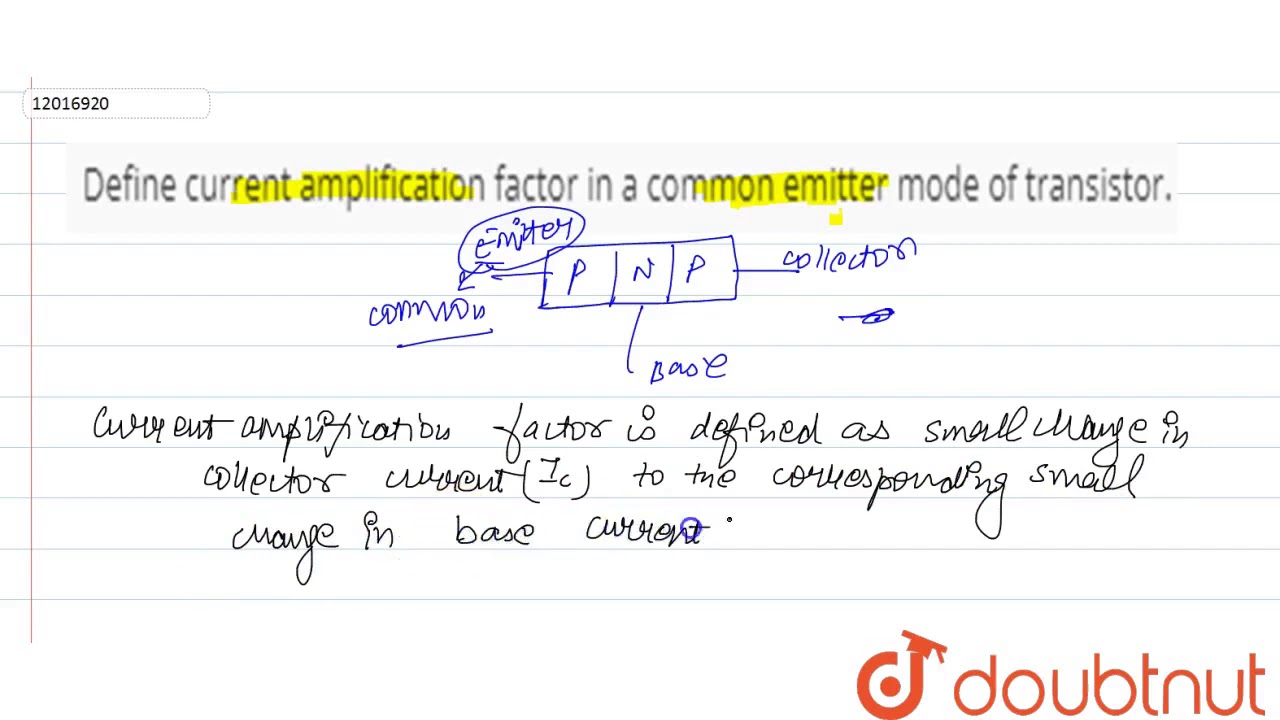 12016920
Define current amplification factor in a common emitter mode of transistor.
emitter
P N P
collector
common
Base
Current amplification factor is defined as small change in
collector current (Ic) to the corresponding small
change in base current
doubtnut